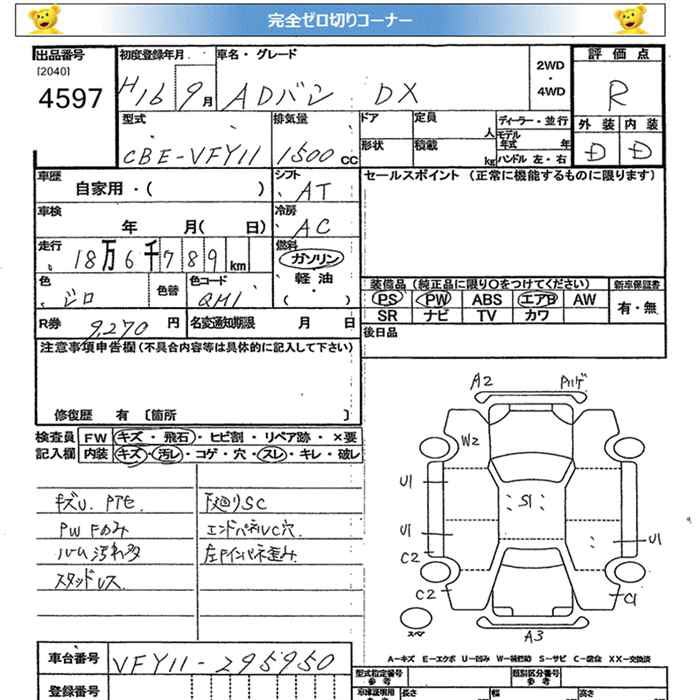 完全ゼロ切りコーナー
出品番号
[2040]
4597
初度登録年月
H16 9月
車名・グレード
ADバン DX
2WD
・
4WD
評価点
R
外装 内装
D D
型式
CBE-VFY11
排気量
1500 CC
ドア
形状
定員
人
積載
kg
ディーラー・並行
モデル年式 年
ハンドル 左・右
車歴
自家用・( )
シフト
AT
車検
年 月( 日)
冷房
AC
走行
18万6千789km
燃料
ガソリン
軽油
( )
色
シロ
色替
色コード
QM1
R券 9,270 円
名変通知期限 月 日
セールスポイント (正常に機能するものに限ります)
装備品 (純正品に限り○をつけてください)
新車保証書
PS PW ABS エアB AW
SR ナビ TV カワ
有・無
後日品
注意事項申告欄 (不具合内容等は具体的に記入して下さい)
修復歴 有 〔箇所 〕
検査員
記入欄
FW キズ・飛石・ヒビ割・リペア跡・×要
内装 キズ・汚レ・コゲ・穴・スレ・キレ・破レ
キズU. PTセ
PW Fのみ
ルーム汚れ多
スタッドレス
下廻りSC
エンドパネルUC穴
左Fインパネ歪み
A2
W2
U1
S1
U1
U1
C2
C2
C1
スペア
A3
A−キズ E−エクボ U−凹み W−補修跡 S−サビ C−腐食 XX−交換済
車台番号
VFY11-295950
登録番号
型式指定番号
参考
類別区分番号
参考
車庫証明用
参考
長さ
幅
高さ